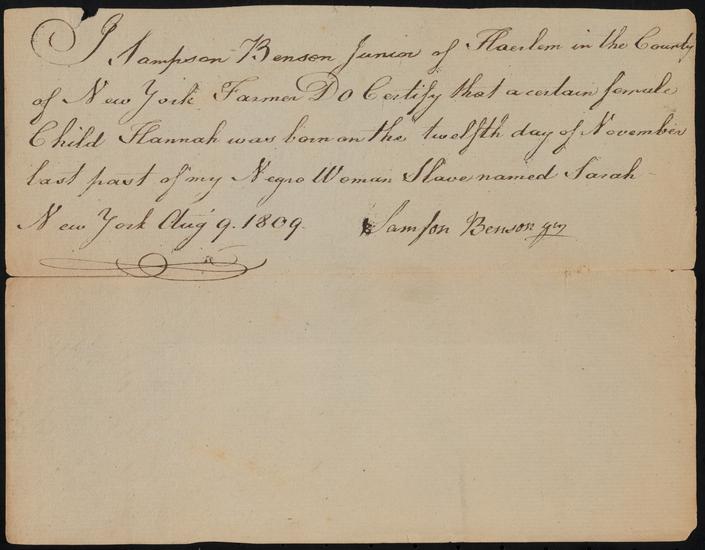 I Sampson Benson Junior of Haerlem in the County
of New York Farmer Do Certify that a certain female
Child Hannah was born on the twelfth day of November
last past of my Negro Woman Slave named Sarah
New York Aug 9. 1809. Samson Benson Jun